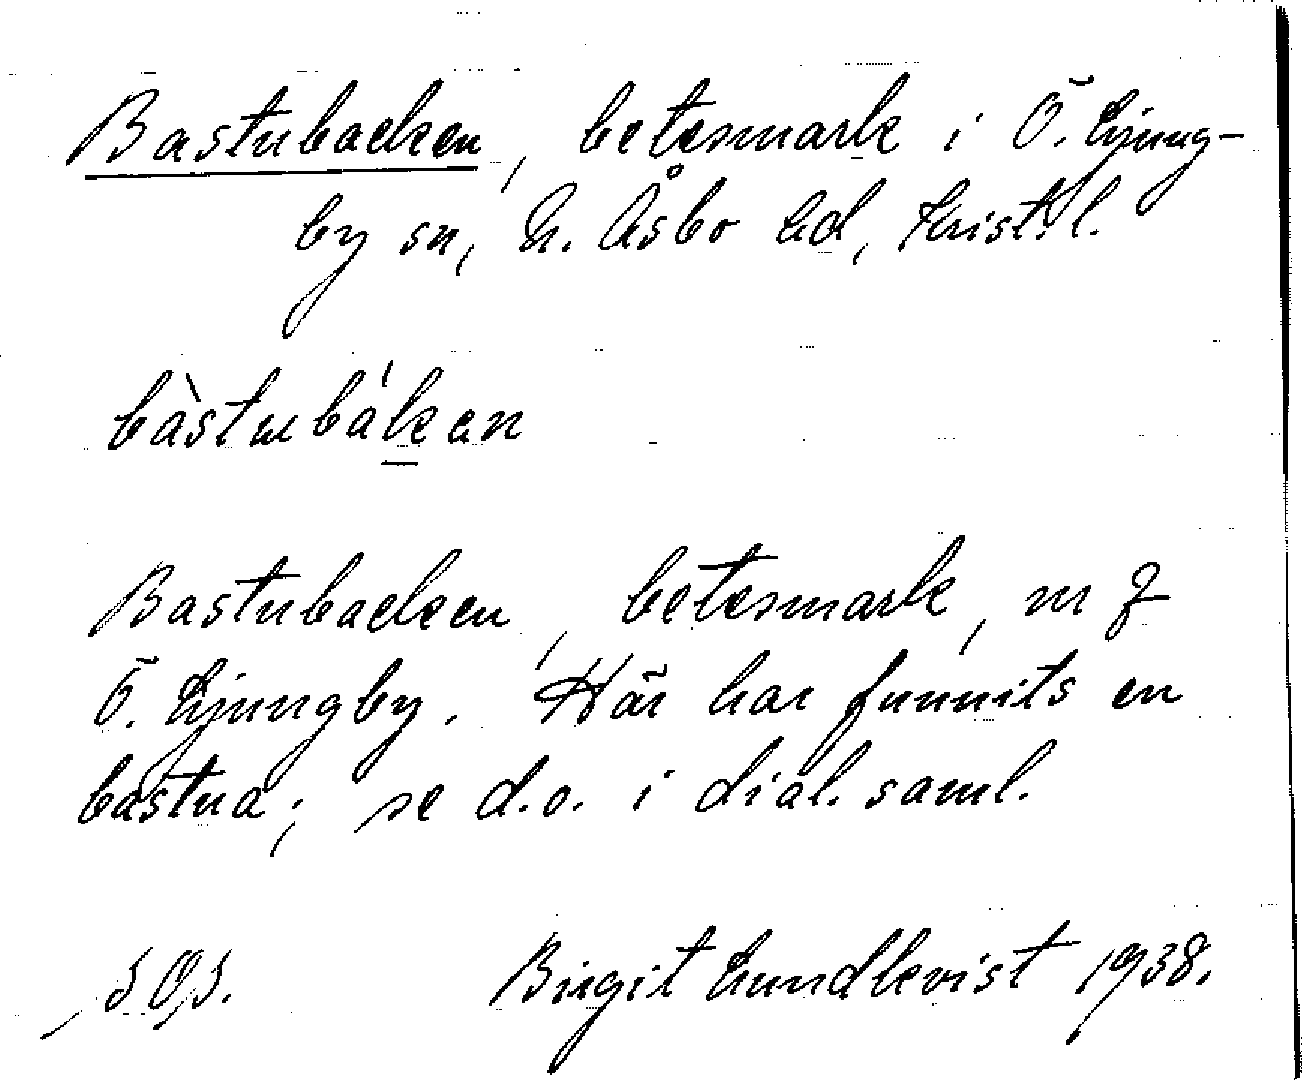 Bastubacken, betesmark i Ö. Ljung-
by sn, N. Åsbo hd, Krist. l.
bàstubák̲an
Bastubacken, betesmark, m f
Ö. Ljungby. Här har funnits en
bastua; se d.o. i dial. saml.
Birgit Lundkvist 1938.